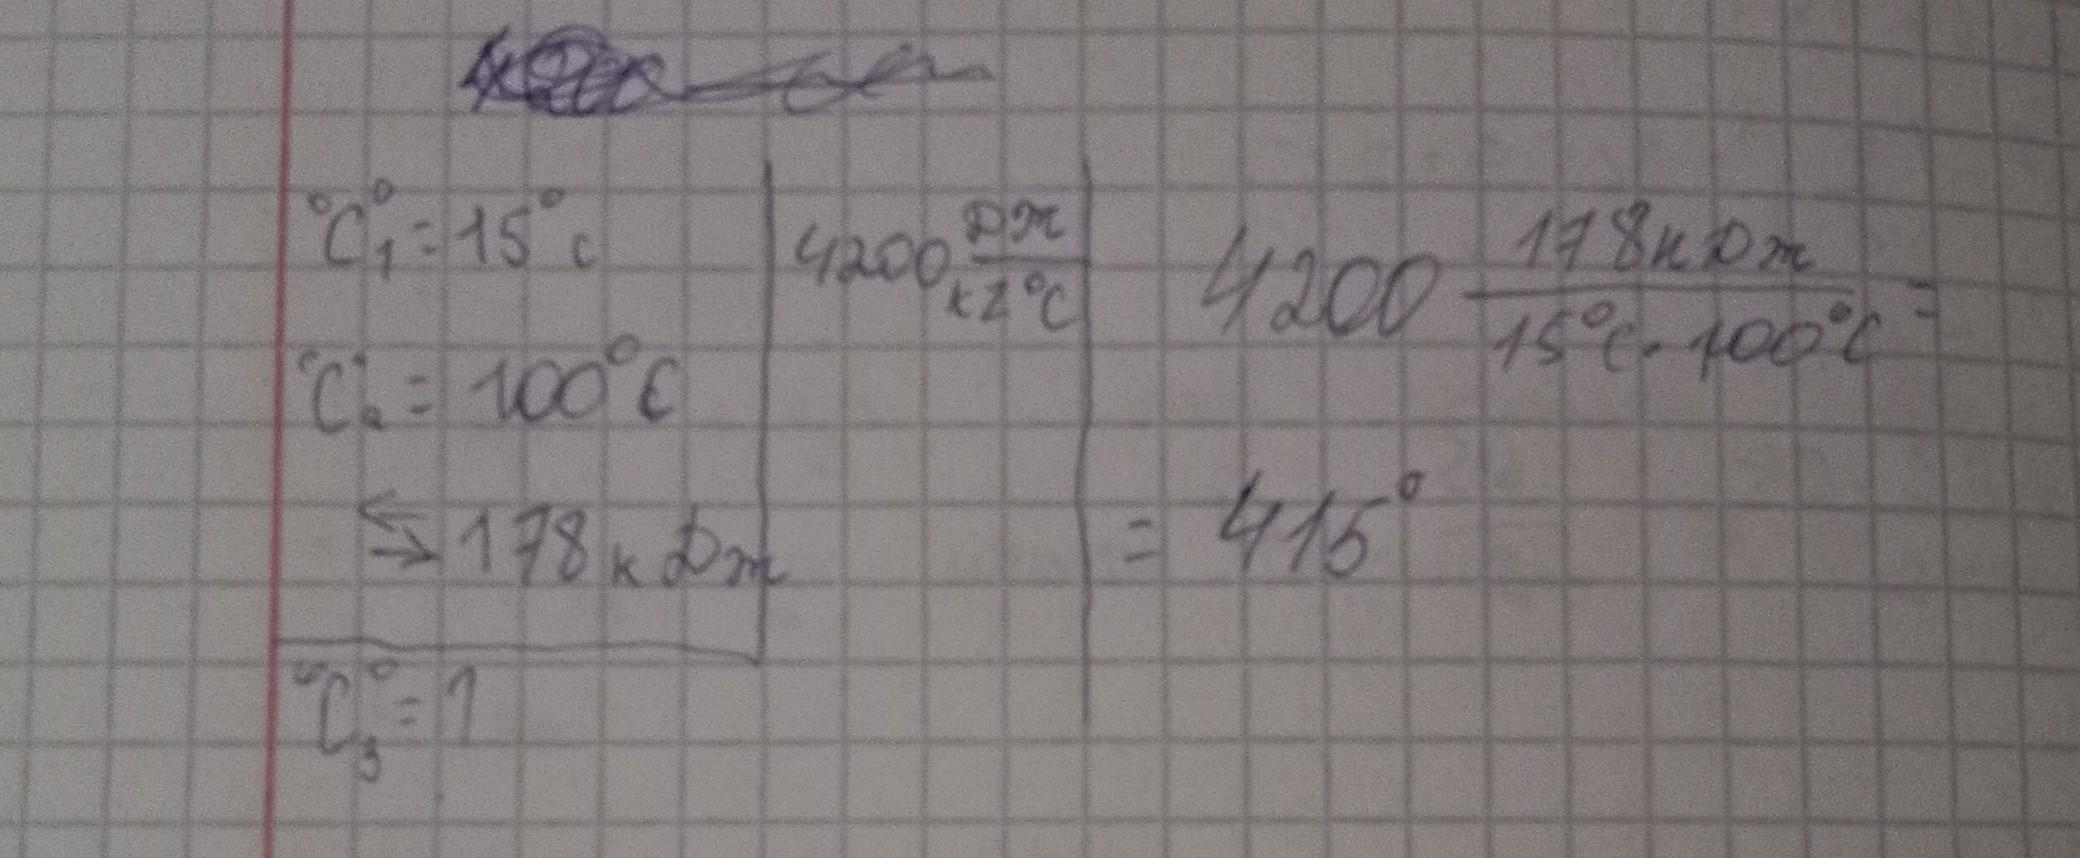 °C°₁ = 15°c
°C°₂ = 100°C
⇆ 178кДж
°C°₃ = 1
4200 Дж/кг°C
4200 178кДж/15°C · 100°C =
= 415°